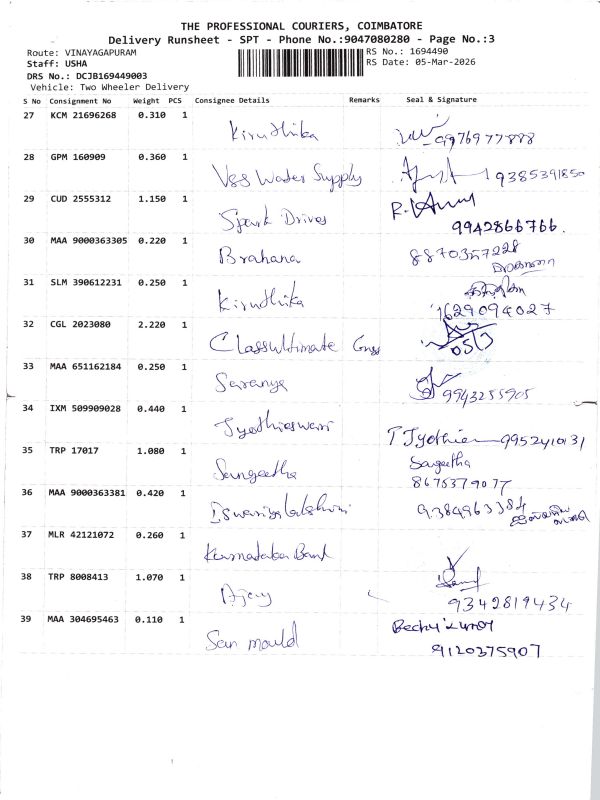 THE PROFESSIONAL COURIERS, COIMBATORE
Delivery Runsheet - SPT - Phone No.:9047080280 - Page No.:3
Route: VINAYAGAPURAM RS No.: 1694490
Staff: USHA RS Date: 05-Mar-2026
DRS No.: DCJB169449003
Vehicle: Two Wheeler Delivery
S No Consignment No Weight PCS Consignee Details Remarks Seal & Signature
27 KCM 21696268 0.310 1
Kiruthika 9976977888
28 GPM 160909 0.360 1
VSS Water Supply 9385391850
29 CUD 2555312 1.150 1
Spark Drives
9942866766.
30 MAA 9000363305 0.220 1
Brahana 8870357228
31 SLM 390612231 0.250 1
Kiruthika
7629094027
32 CGL 2023080 2.220 1
Classultimate
05/3
33 MAA 651162184 0.250 1
Saranya 9943255905
34 IXM 509909028 0.440 1
Jyothieswari
35 TRP 17017 1.080 1
Sangeetha Sangeetha
8675379077
36 MAA 9000363381 0.420 1
Iswariya lakshmi 9384963384
37 MLR 42121072 0.260 1
Karnataka Bank
38 TRP 8008413 1.070 1
Ajay 9342819434
39 MAA 304695463 0.110 1
San mould
9120375907